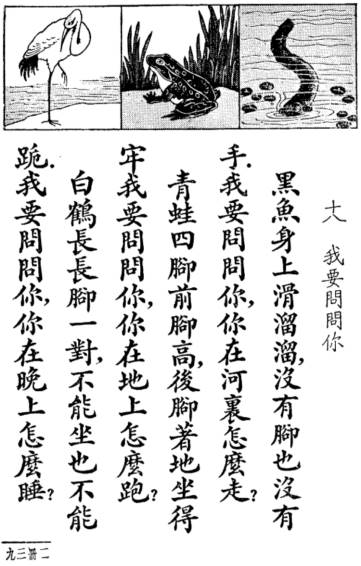 十八 我要問問你
黑魚身上滑溜溜,沒有腳也沒有
手.我要問問你,你在河裏怎麼走?
青蛙四腳前腳高,後腳著地坐得
牢.我要問問你,你在地上怎麼跑?
白鶴長長腳一對,不能坐也不能
跪.我要問問你,你在晚上怎麼睡?
二冊三九